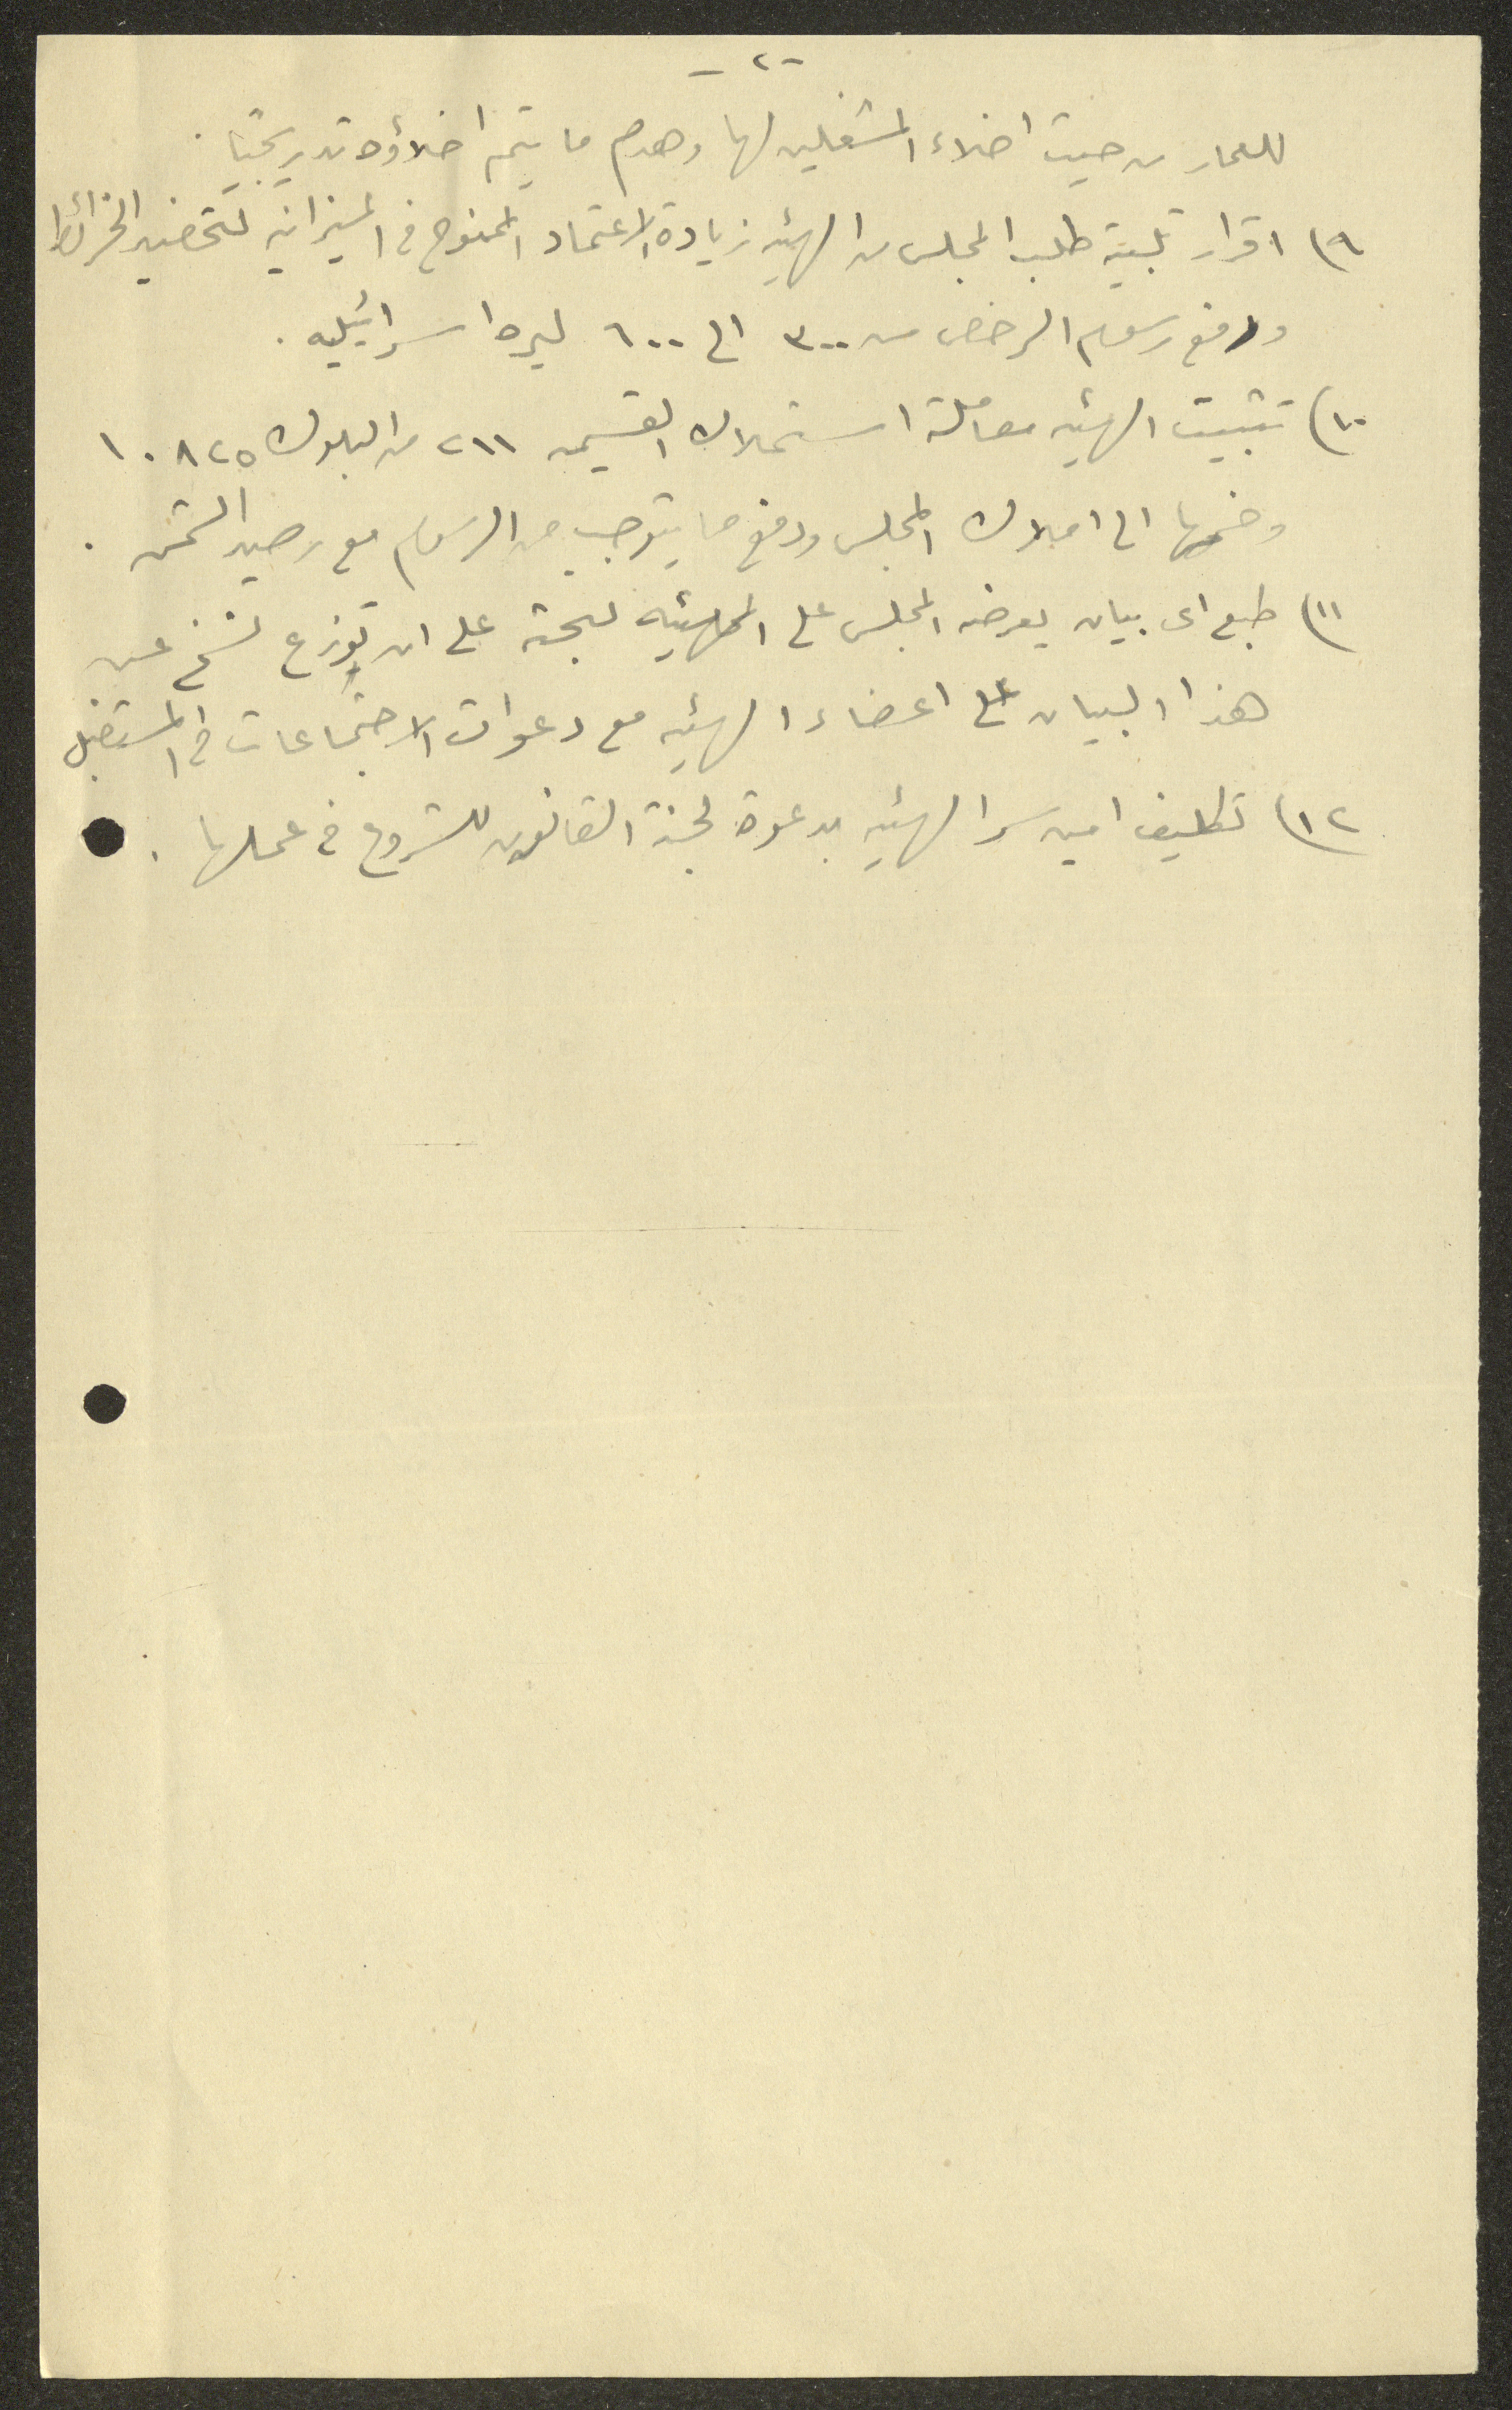 - ٢ -
للعمار من حيث اخلاء المشغلين لها وهدم ما يتم اخلاؤه تدريجيًا .
٩) اقرار تلبية طلب المجلس من الهيئه زيادة الاعتماد الممنوح في الميزانيه لتحضير الخرائط
ودفع رسوم الرخص من ٣٠٠ الى ٦٠٠ ليره اسرائيليه .
١٠) تثبيت الهيئه معاملة استملاك القسيمه ٢١١ من البلوك ١٠٨٢٥
وضمها الى املاك المجلس ودفع ما يتوجب من الرسوم مع رصيد الثمن .
١١) طبع اى بيان يعرضه المجلس على الهيئه على ان توزع نسخ عن
هذا البيان على اعضاء الهيئه مع دعوات الاجتماعات في المستقبل
١٢) تكليف امين سر الهيئه بدعوة لجنة القانون للشروع في عملها .